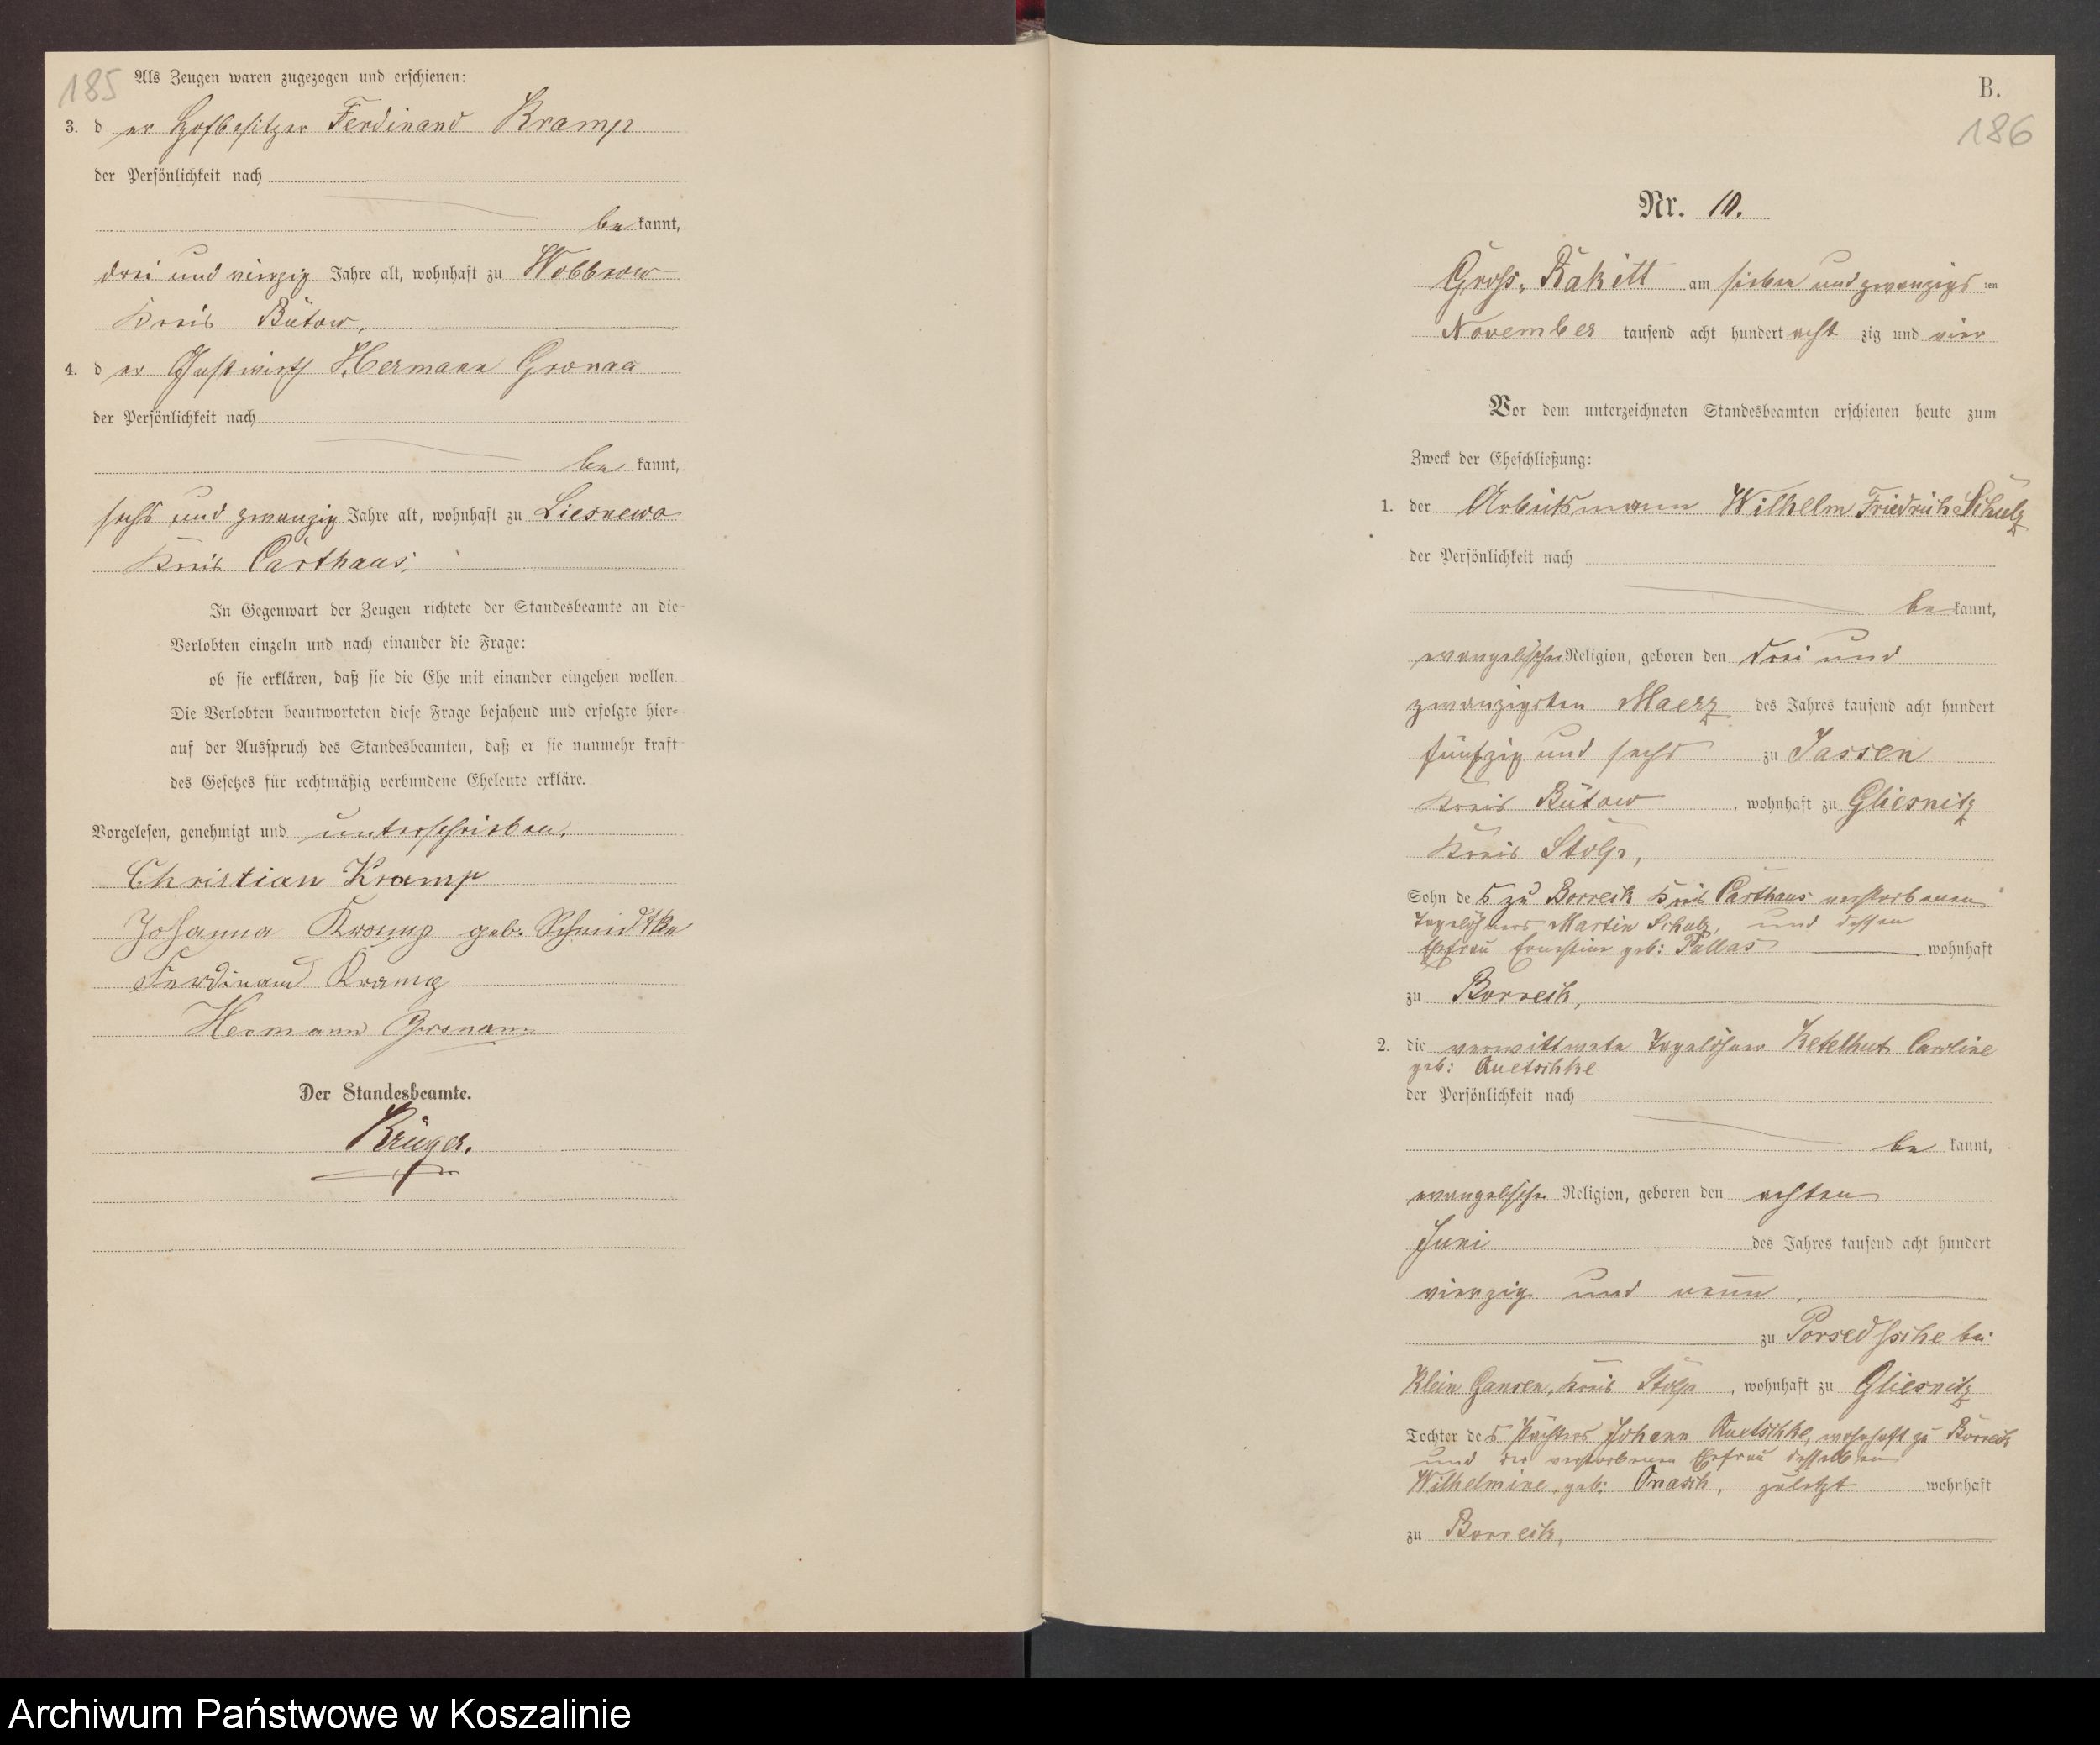 185
Als Zeugen waren zugezogen und erschienen:
3. d er Hofbesitzer Ferdinand Kramp
der Persönlichkeit nach
be kannt,
drei und vierzig Jahre alt, wohnhaft zu Wobbrow
Kreis Bütow,
4. d er Gastwirth Hermann Gronau
der Persönlichkeit nach
be kannt,
sechs und zwanzig Jahre alt, wohnhaft zu Liesnewo
Kreis Carthaus,
In Gegenwart der Zeugen richtete der Standesbeamte an die
Verlobten einzeln und nach einander die Frage:
ob sie erklären, daß sie die Ehe mit einander eingehen wollen.
Die Verlobten beantworteten diese Frage bejahend und erfolgte hier-
auf der Ausspruch des Standesbeamten, daß er sie nunmehr kraft
des Gesetzes für rechtmäßig verbundene Eheleute erkläre.
Vorgelesen, genehmigt und unterschrieben.
Christian Kramp
Johanna Kramp geb. Schmidtke
Ferdinand Kramp
Hermann Gronau
Der Standesbeamte.
Krüger.
B.
186
Nr. 10.
Gross-Rakitt am sieben und zwanzigs ten
November tausend acht hundert acht zig und vier
Vor dem unterzeichneten Standesbeamten erschienen heute zum
Zweck der Eheschließung:
1. der Arbeitsmann Wilhelm Friedrich Schulz
der Persönlichkeit nach
be kannt,
evangelischer Religion, geboren den drei und
zwanzigsten Maerz des Jahres tausend acht hundert
fünfzig und sechs zu Jassen
Kreis Bütow, wohnhaft zu Gliesnitz
Kreis Stolp,
Sohn des zu Borreck Kreis Carthaus verstorbenen
Tagelöhners Martin Schulz, und dessen
Ehefrau Ernestine geb: Pallas wohnhaft
zu Borreck,
2. die verwittwete Tagelöhner Ketelhut Caroline
geb: Quetschke
der Persönlichkeit nach
be kannt,
evangelischer Religion, geboren den achten
Juni des Jahres tausend acht hundert
vierzig und neun,
zu bei
Klein Gansen, Kreis Stolp, wohnhaft zu Gliesnitz
Tochter des Pächters Johann Quetschke, wohnhaft zu Borreck
und der verstorbenen Ehefrau desselben
Wilhelmine, geb: Onasch, zuletzt wohnhaft
zu Borreck,
Archiwum Państwowe w Koszalinie